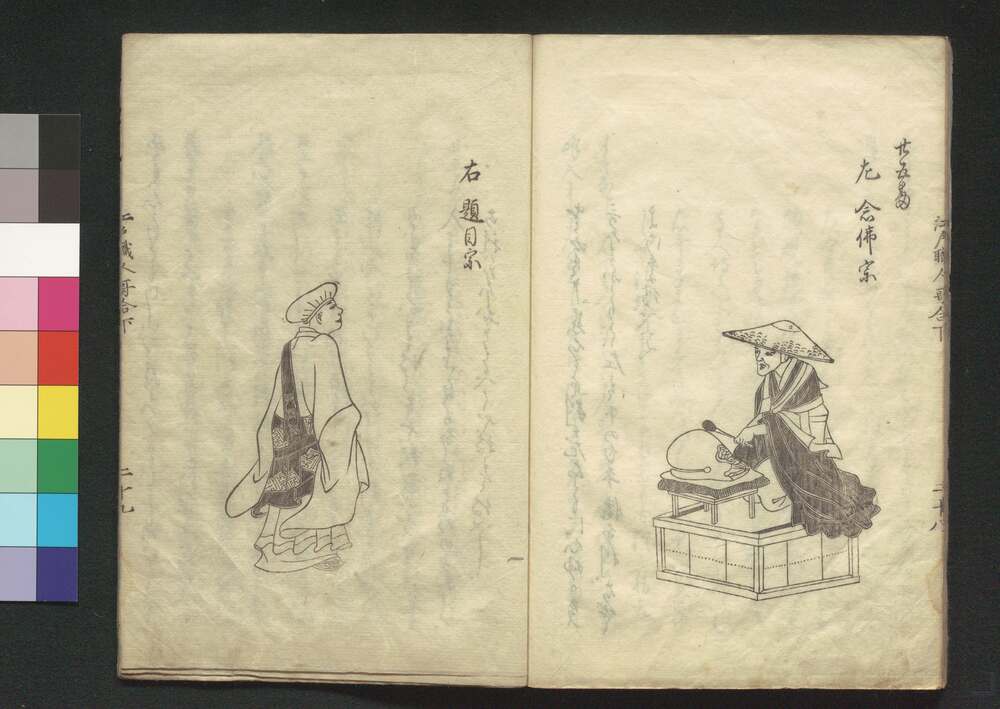 廿五番
左 念佛宗
江戸職人哥合下
二十八
右 題目宗
江戸職人哥合下
二十九